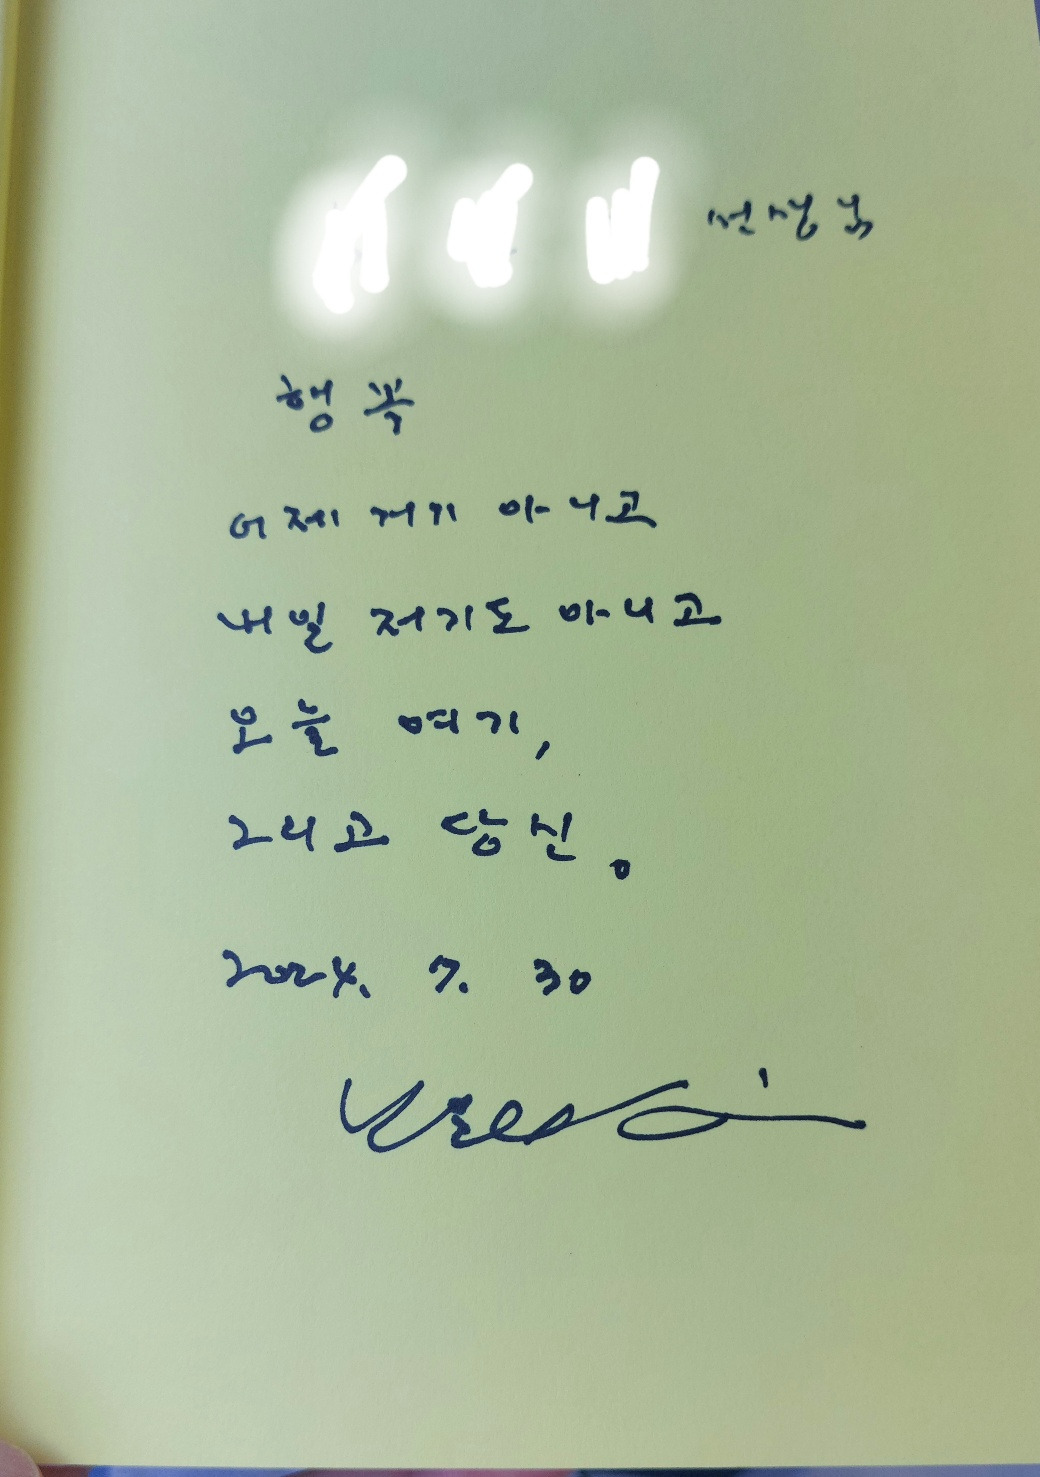 선생님
행복
어제 거기 아니고
내일 저기도 아니고
오늘 여기,
그리고 당신。
2024. 7. 30